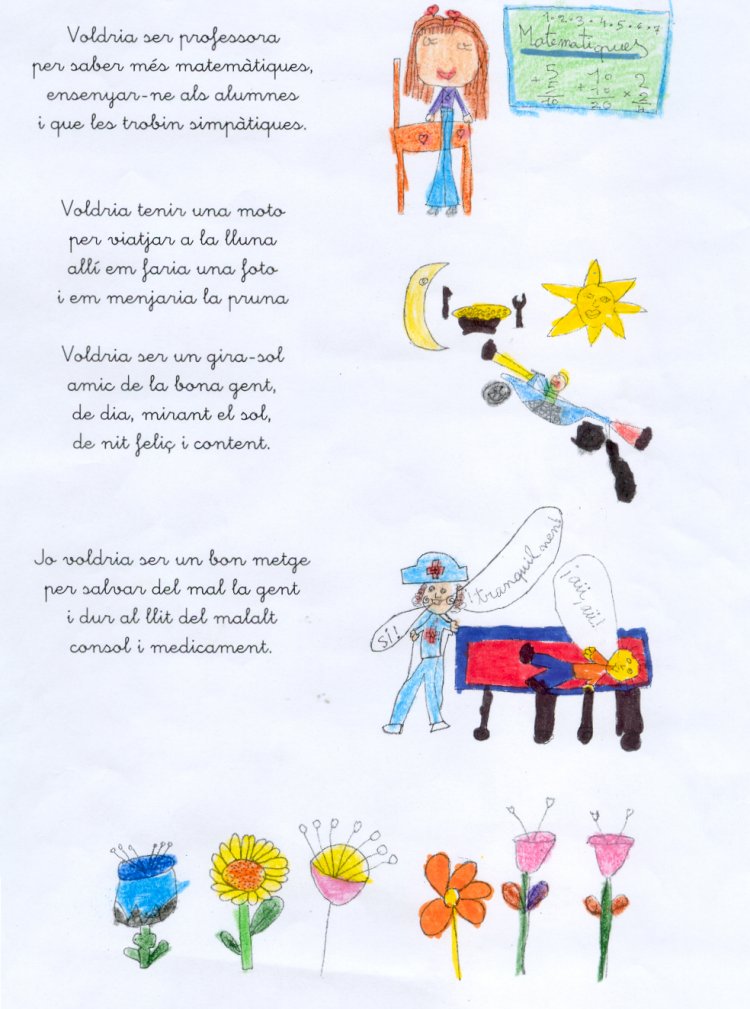 Voldria ser professora
per saber més matemàtiques,
ensenyar-ne als alumnes
i que les trobin simpàtiques.
1.2.3.4.5.6.7
Matemàtiques
5
+ 5
10
10
+ 10
20
2
x 2
Voldria tenir una moto
per viatjar a la lluna
allí em faria una foto
i em menjaria la pruna
Voldria ser un gira-sol
amic de la bona gent,
de dia, mirant el sol,
de nit feliç i content.
Jo voldria ser un bon metge
per salvar del mal la gent
i dur al llit del malalt
consol i medicament.
¡tranquil nen!
sí!
¡aii, aii!